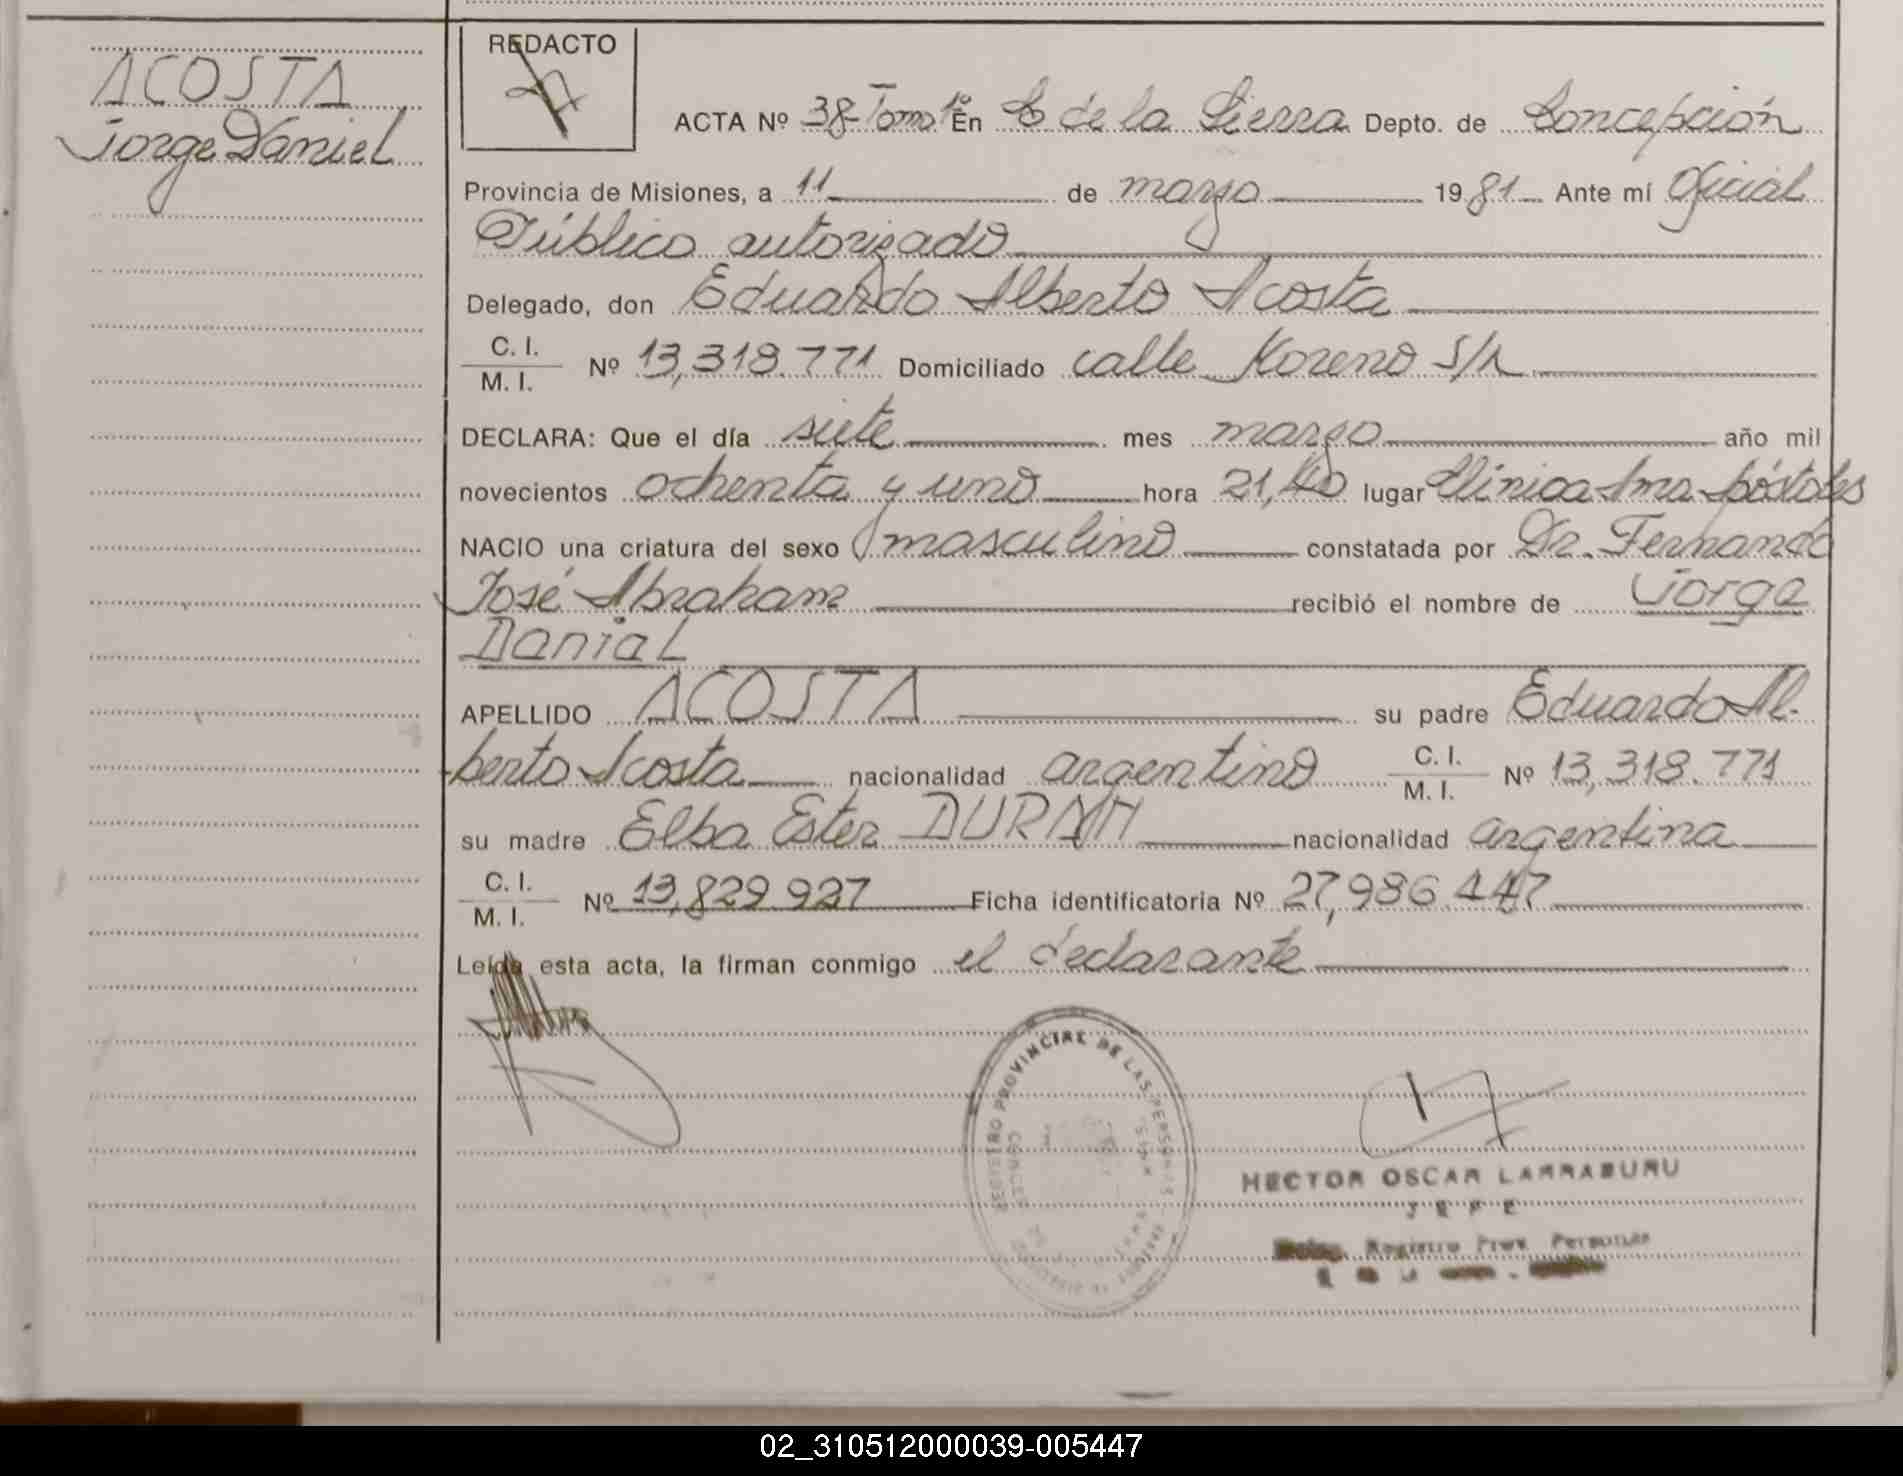 ACOSTA
Jorge Daniel
REDACTO
ACTA Nº 38-Tomo 1º En C. de la Sierra Depto. de Concepción
Provincia de Misiones, a 11 de marzo 1981 Ante mí Oficial
Público autorizado
Delegado, don Eduardo Alberto Acosta
C. I.
M. I. Nº 13,318.771 Domiciliado calle Moreno S/n
DECLARA: Que el día siete mes marzo año mil
novecientos ochenta y uno hora 21,40 lugar Clínica Ama-Apóstoles
NACIO una criatura del sexo masculino constatada por Dr. Fernando
José Abraham recibió el nombre de Jorge
DanieL
APELLIDO ACOSTA su padre Eduardo Al-
berto Acosta nacionalidad argentino C. I.
M. I. Nº 13,318.771
su madre Elba Ester DURAN nacionalidad argentina
C. I.
M. I. Nº 13,829.927 Ficha identificatoria Nº 27,986.447
Leída esta acta, la firman conmigo el declarante
REGISTRO PROVINCIAL DE LAS PERSONAS
HECTOR OSCAR LARRABURU
JEFE
Deleg. Registro Prov. Personas
02_310512000039-005447